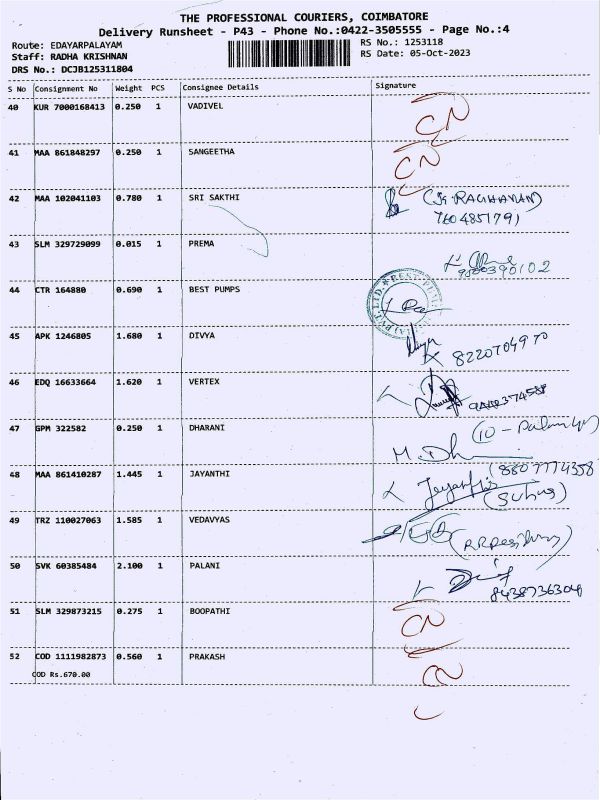 THE PROFESSIONAL COURIERS, COIMBATORE
Delivery Runsheet - P43 - Phone No.:0422-3505555 - Page No.:4
Route: EDAYARPALAYAM RS No.: 1253118
Staff: RADHA KRISHNAN RS Date: 05-Oct-2023
DRS No.: DCJB125311804
S No Consignment No Weight PCS Consignee Details Signature
40 KUR 7000168413 0.250 1 VADIVEL CN
41 MAA 861848297 0.250 1 SANGEETHA CN
42 MAA 102041103 0.780 1 SRI SAKTHI (K. RAGHAVAN)
7604851791
43 SLM 329729099 0.015 1 PREMA
44 CTR 164880 0.690 1 BEST PUMPS
45 APK 1246805 1.680 1 DIVYA 8220704970
46 EDQ 16633664 1.620 1 VERTEX
47 GPM 322582 0.250 1 DHARANI
M. Dh
48 MAA 861410287 1.445 1 JAYANTHI 8807774358
Jayanthi
49 TRZ 110027063 1.585 1 VEDAVYAS
50 SVK 60385484 2.100 1 PALANI
8438736304
51 SLM 329873215 0.275 1 BOOPATHI CN
52 COD 1111982873 0.560 1 PRAKASH CN
COD Rs.670.00